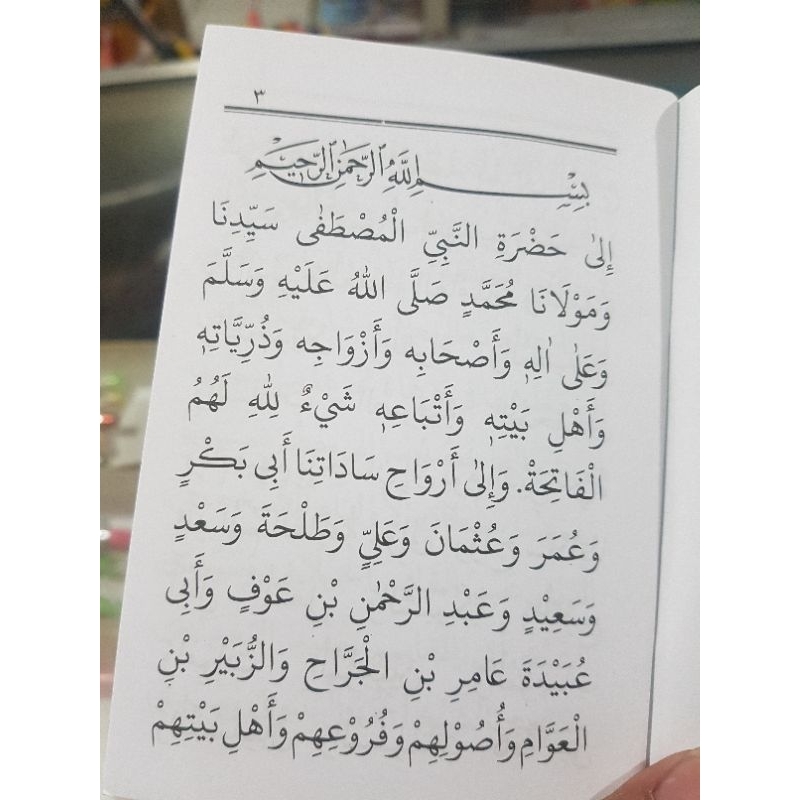 ٣
بِسْمِ اللَّهِ الرَّحْمَٰنِ الرَّحِيمِ
إِلىٰ حَضْرَةِ النَّبِيِّ الْمُصْطَفٰى سَيِّدِنَا
وَمَوْلَانَا مُحَمَّدٍ صَلَّى اللهُ عَلَيْهِ وَسَلَّمَ
وَعَلٰى اٰلِهٖ وَأَصْحَابِه وَأَزْوَاجِه وَذُرِّيَّاتِهٖ
وَأَهْلِ بَيْتِهٖ وَأَتْبَاعِهٖ شَيْءٌ لِلهِ لَهُمُ
الْفَاتِحَةْ. وَإِلىٰ أَرْوَاحِ سَادَاتِنَا أَبِى بَكْرٍ
وَعُمَرَ وَعُثْمَانَ وَعَلِيٍّ وَطَلْحَةَ وَسَعْدٍ
وَسَعِيْدٍ وَعَبْدِ الرَّحْمٰنِ بْنِ عَوْفٍ وَأَبِى
عُبَيْدَةَ عَامِرِ بْنِ الْجَرَّاحِ وَالزُّبَيْرِ بْنِ
الْعَوَّامِ وَأُصُوْلِهِمْ وَفُرُوْعِهِمْ وَأَهْلِ بَيْتِهِمْ